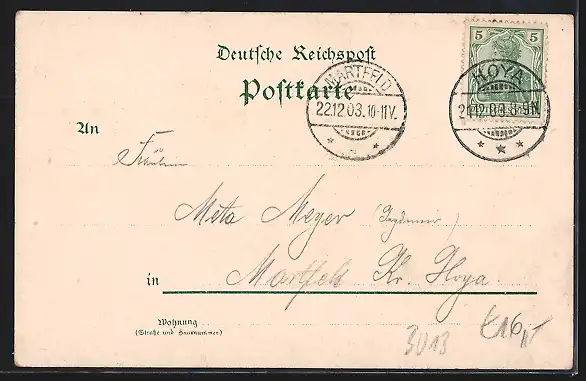 Deutsche Reichspost
Postkarte
MARTFELD
22.12.03.10-11V.
5 5
HOYA
21.12.03.8-9N
An
Fräulein
Meta Meyer
in Martfeld Kr. Hoya
Wohnung
(Straße und Hausnummer)
3013